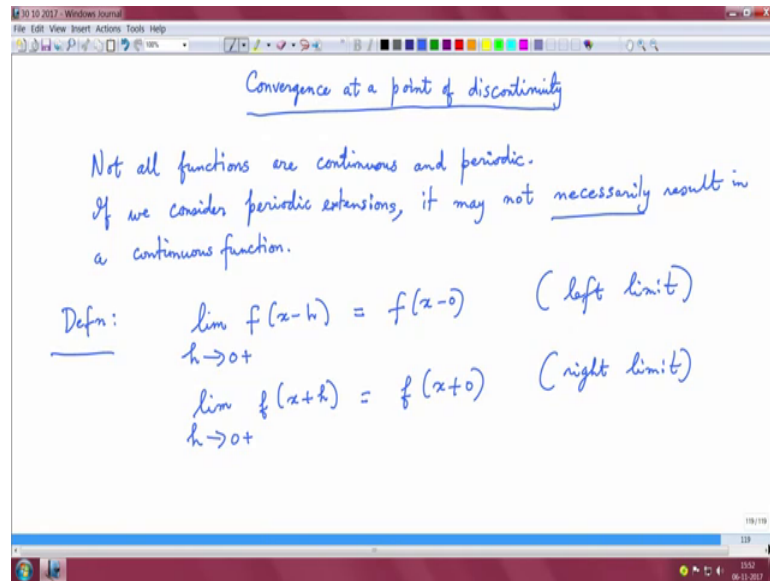 30 10 2017 - Windows Journal
File Edit View Insert Actions Tools Help
100%
B I
Convergence at a point of discontinuity
Not all functions are continuous and periodic.
If we consider periodic extensions, it may not necessarily result in
a continuous function.
Defn: lim f(x-h) = f(x-0) (left limit)
h→0+
lim f(x+h) = f(x+0) (right limit)
h→0+
119/119
119
15:52
06-11-2017